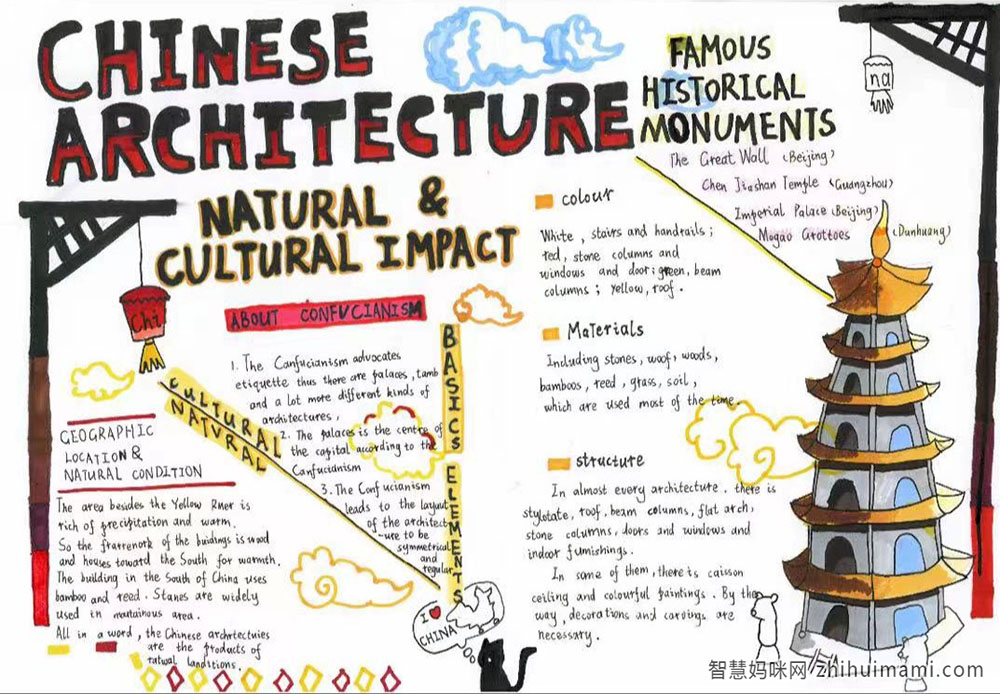 CHINESE
ARCHITECTURE
FAMOUS
HISTORICAL
MONUMENTS
The Great Wall (Beijing)
Chen Jiashan Temple (Guangzhou)
Imperial Palace (Beijing)
Mogao Grottoes (Dunhuang)
na
NATURAL &
CULTURAL IMPACT
Chi
ABOUT CONFUCIANISM
1. The Confucianism advocates
etiquette thus there are palaces, tamb
and a lot more different kinds of
architectures,
2. The palaces is the centre of
the capital according to the
Canfucianism
3. The Confucianism
leads to the layout
of the architect
-ure to be
symmetrical
and
regular
CULTURAL
NATURAL
GEOGRAPHIC
LOCATION &
NATURAL CONDITION
The area besides the Yellow River is
rich of precipitation and warm.
So the framework of the buidings is wood
and houses toward the South for warmth.
The building in the South of China uses
bamboo and reed. Stanes are widely
used in mantainous area.
All in a word, the Chinese architectuies
are the products of
landitions.
BASICS ELEMENTS
I ❤
CHINA
colour
White, stairs and handrails;
red, stone columns and
windows and door; green, beam
columns; yellow, roof.
Materials
Including stones, woof, woods,
bamboos, reed, grass, soil,
which are used most of the time.
structure
In almost every architecture. there is
stylotate, roof, beam columns, flat arch,
stone columns, doors and windows and
indoor furnishings.
In some of them, there is caisson
ceiling and colourful paintings. By the
way, decorations and carvings are
necessary.
智慧妈咪网 zhihuimami.com